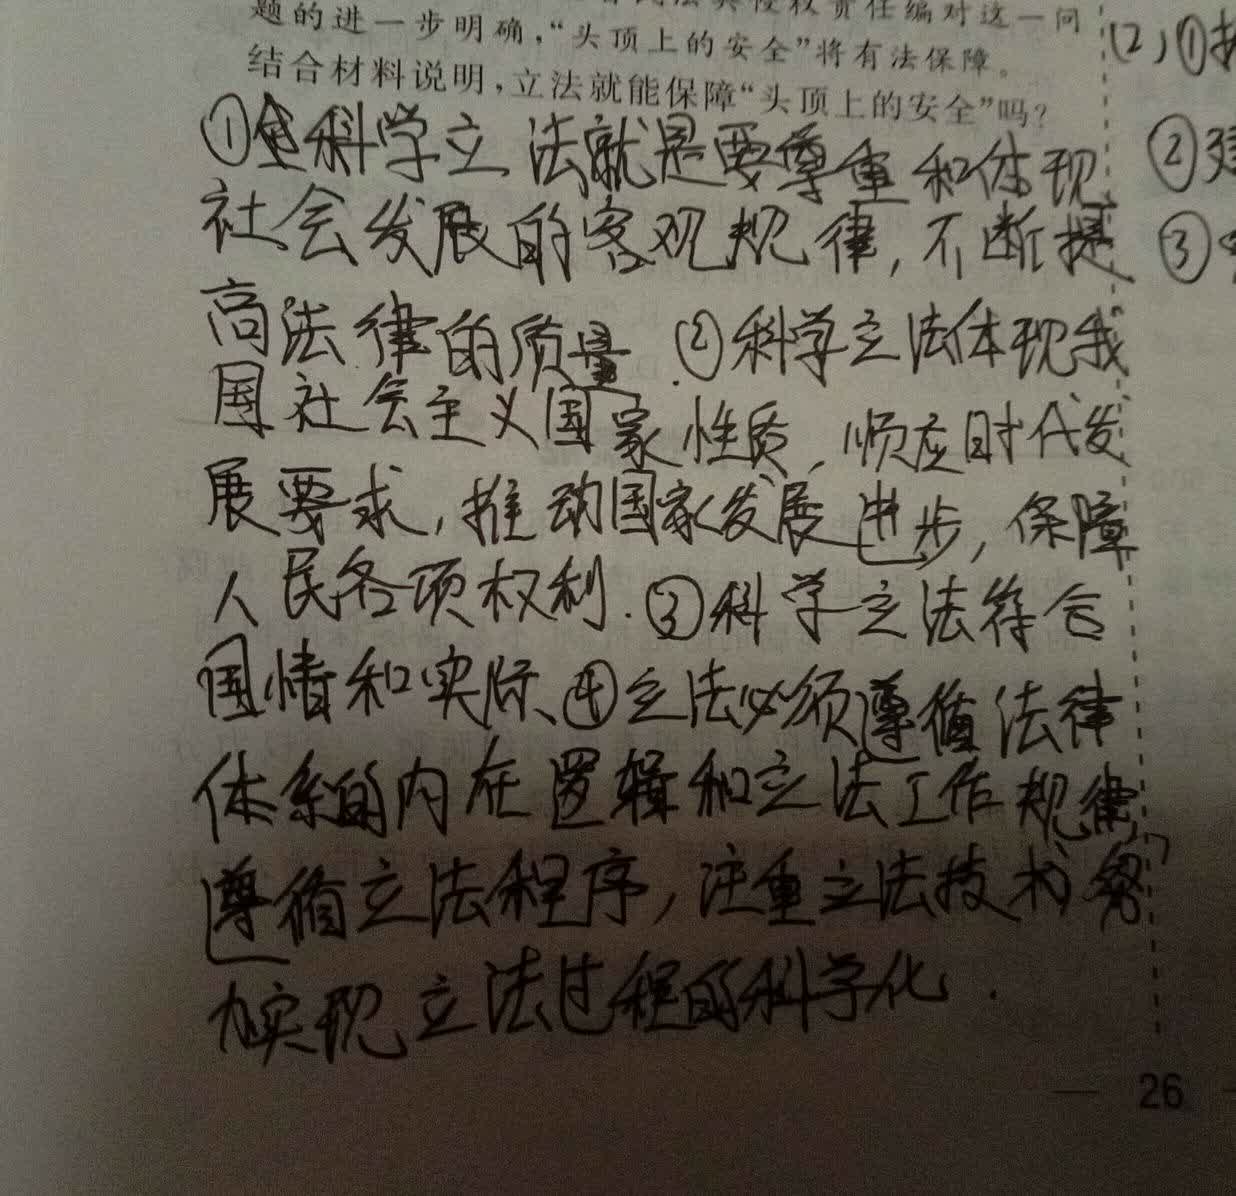 民法典侵权责任编对这一问
题的进一步明确，“头顶上的安全”将有法保障。
结合材料说明，立法就能保障“头顶上的安全”吗？
①科学立法就是要尊重和体现
社会发展的客观规律，不断提
高法律的质量.②科学立法体现我
国社会主义国家性质，顺应时代发
展要求，推动国家发展进步，保障
人民各项权利.③科学立法符合
国情和实际、④立法必须遵循法律
体系的内在逻辑和立法工作规律，
遵循立法程序，注重立法技术，努
力实现立法过程的科学化.
(2)①
②
③
26